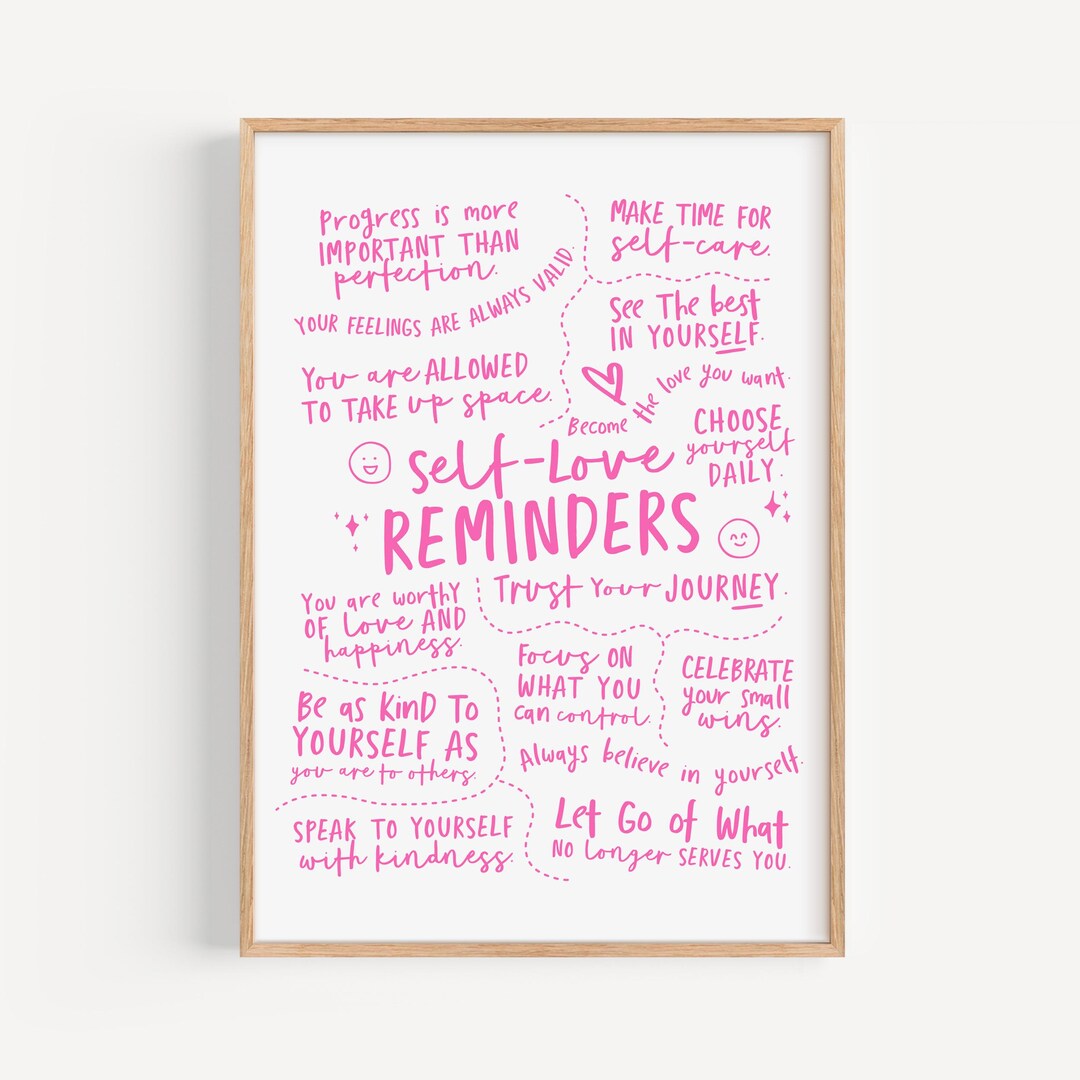 Progress is more
IMPORTANT THAN
perfection.
YOUR FEELINGS ARE ALWAYS VALID.
You are ALLOWED
TO TAKE up space.
MAKE TIME FOR
self-care.
See The best
IN YOURSELF.
Become the love you want.
CHOOSE
yourself
DAILY.
Self-Love
REMINDERS
You are worthy
OF Love AND
happiness.
Trust Your JOURNEY.
Be as KinD To
YOURSELF AS
you are to others.
Focus ON
WHAT YOU
can control.
CELEBRATE
your small
wins.
Always believe in yourself.
SPEAK TO YOURSELF
with kindness.
Let Go of What
NO longer SERVES YOU.